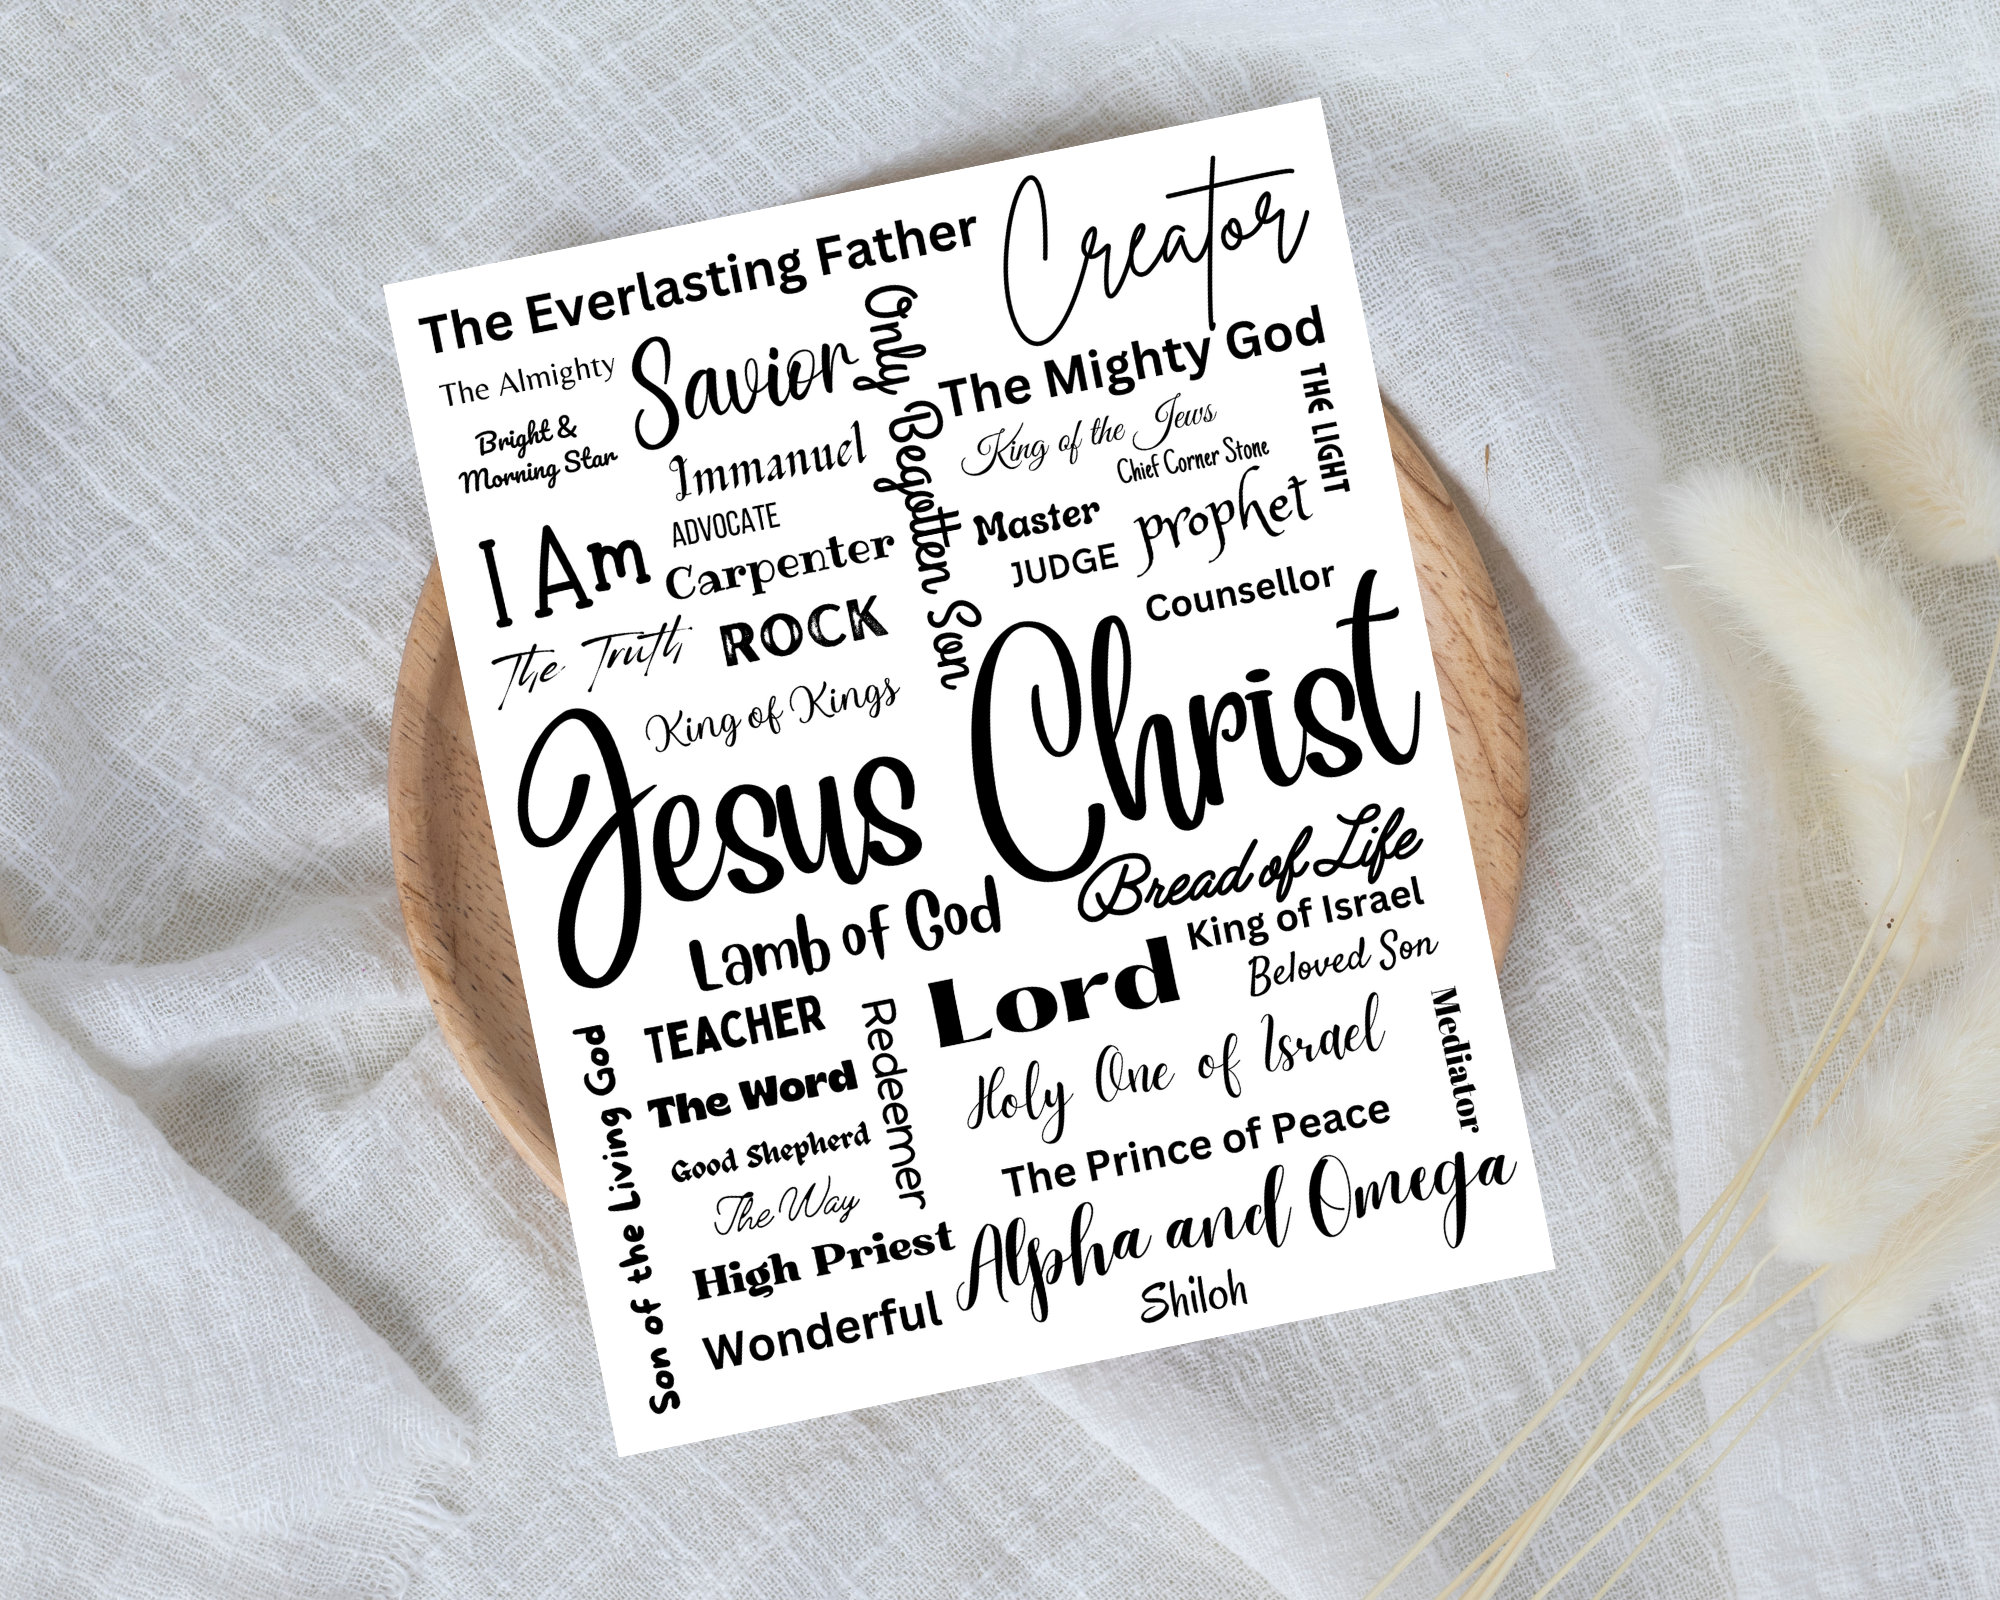 The Everlasting Father
Creator
The Almighty
Savior
Only Begotten Son
The Mighty God
Bright &
Morning Star
Immanuel
King of the Jews
Chief Corner Stone
THE LIGHT
I Am
ADVOCATE
Carpenter
Master
prophet
JUDGE
The Truth
ROCK
Counsellor
King of Kings
Jesus Christ
Lamb of God
Bread of Life
King of Israel
Beloved Son
Lord
TEACHER
Redeemer
Holy One of Israel
Mediator
Son of the Living God
The Word
Good Shepherd
The Way
The Prince of Peace
High Priest
Alpha and Omega
Wonderful
Shiloh